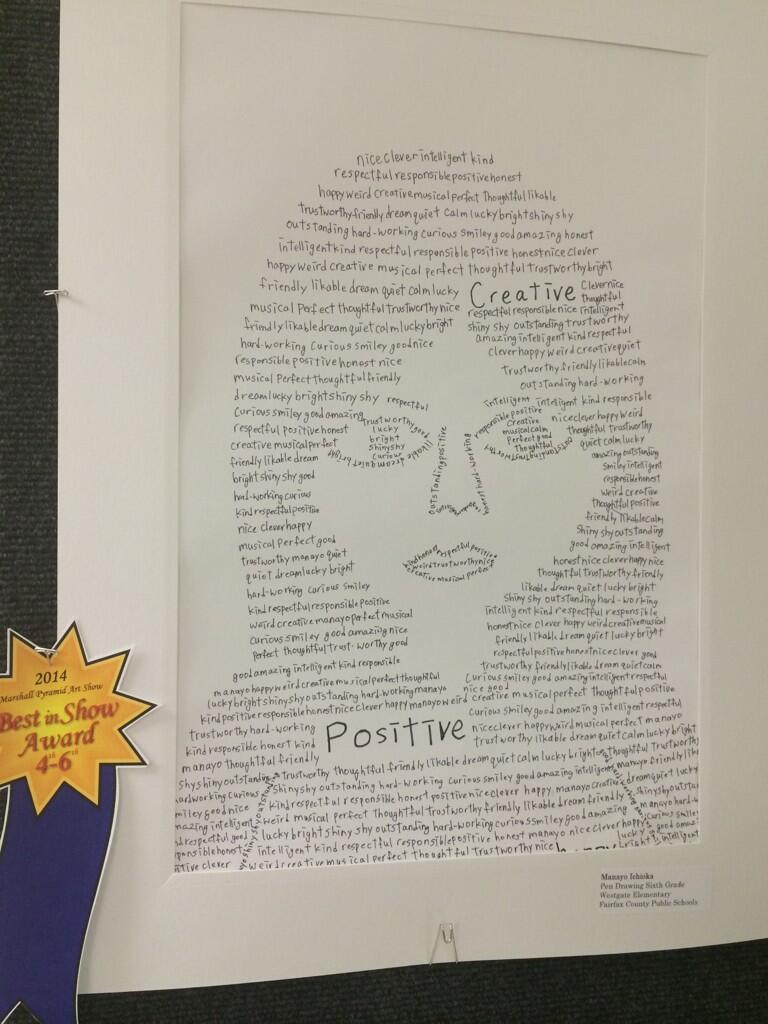 nice clever intelligent kind
respectful responsible positive honest
happy weird creative musical perfect thoughtful likable
trustworthy friendly dream quiet calm lucky bright shiny shy
outstanding hard-working curious smiley good amazing honest
intelligent kind respectful responsible positive honest nice clever
happy weird creative musical perfect thoughtful trustworthy bright
friendly likable dream quiet calm lucky
Creative
clever nice
thoughtful
musical Perfect thoughtful trustworthy nice
respectful responsible nice intelligent
friendly likable dream quiet calm lucky bright
shiny shy outstanding trustworthy
amazing intelligent kind respectful
hard-working Curious smiley good nice
clever happy weird creative quiet
responsible positive honest nice
trustworthy friendly likable calm
musical Perfect thoughtful friendly
outstanding hard-working
dream lucky bright shiny shy respectful
intelligent intelligent kind responsible
Curious smiley good amazing trustworthy good
responsible positive nice clever happy weird
respectful positive honest lucky
Creative thoughtful trustworthy
creative musical perfect bright
musical calm quiet calm lucky
friendly likable dream shiny shy
perfect good amazing outstanding
Curious
thoughtful smiley intelligent
bright shiny shy good
responsible honest
hard-working curious
weird creative
kind respectful positive
thoughtful positive
outstanding positive
honest hard-working
nice clever happy
friendly likable calm
musical Perfect good
shiny shy outstanding
good amazing intelligent
trustworthy manayo quiet
kind honest respectful positive
honest nice clever happy nice
quiet dream lucky bright
weird trustworthy nice
thoughtful trustworthy friendly
creative musical perfect
hard-working curious smiley
likable dream quiet lucky bright
kind respectful responsible Positive
shiny shy outstanding hard-working
weird creative manayo perfect musical
intelligent kind respectful responsible
honest nice clever happy weird creative musical
curious smiley good amazing nice
friendly likable dream quiet lucky bright
Perfect thoughtful trust-worthy good
respectful positive honest nice clever good
good amazing intelligent kind responsible
trustworthy friendly likable dream quiet calm
manayo happy weird creative musical perfect thoughtful
Curious smiley good amazing intelligent respectful
lucky bright shiny shy outstanding hard-working manayo
nice good
creative musical perfect thoughtful positive
kind positive responsible honest nice clever happy manayo weird
Curious smiley good amazing intelligent respectful
trustworthy hard-working
Positive
nice clever happy weird musical perfect manayo
kind responsible honest kind
trustworthy likable dream quiet calm lucky bright
manayo thoughtful friendly
Shy shiny outstanding
trustworthy thoughtful friendly likable dream quiet calm lucky bright
thoughtful trustworthy
hardworking curious
shiny shy outstanding hard-working Curious smiley good amazing intelligent
manayo friendly
smiley good nice
Kind respectful responsible honest positive nice clever happy, manayo Creative
dream quiet lucky
amazing intelligent
weird musical perfect thoughtful trustworthy friendly likable dream friendly
shiny shy
respectful good
lucky bright shiny shy outstanding hard-working curious smiley good amazing
manayo hard-
honest
intelligent kind respectful responsible positive honest manayo nice clever happy
Curious smiley
lucky good
clever
weird creative musical perfect thoughtful trustworthy nice
bright intelligent
2014
Marshall Pyramid Art Show
Best in Show
Award
4th-6th
Manayo Ichioka
Pen Drawing Sixth Grade
Westgate Elementary
Fairfax County Public Schools